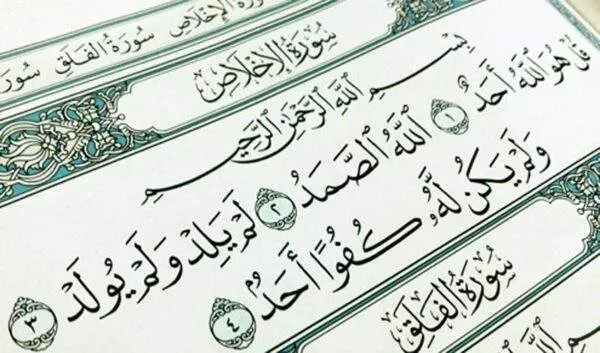 ورة الإخلاص سورة الفلق سور
سُورَةُ الإِخْلَاصِ
بِسْمِ ٱللَّهِ ٱلرَّحْمَٰنِ ٱلرَّحِيمِ
قُلْ هُوَ ٱللَّهُ أَحَدٌ ١ ٱللَّهُ ٱلصَّمَدُ ٢ لَمْ يَلِدْ وَلَمْ يُولَدْ ٣
وَلَمْ يَكُن لَّهُۥ كُفُوًا أَحَدٌۢ ٤
سُورَةُ الفَلَقِ